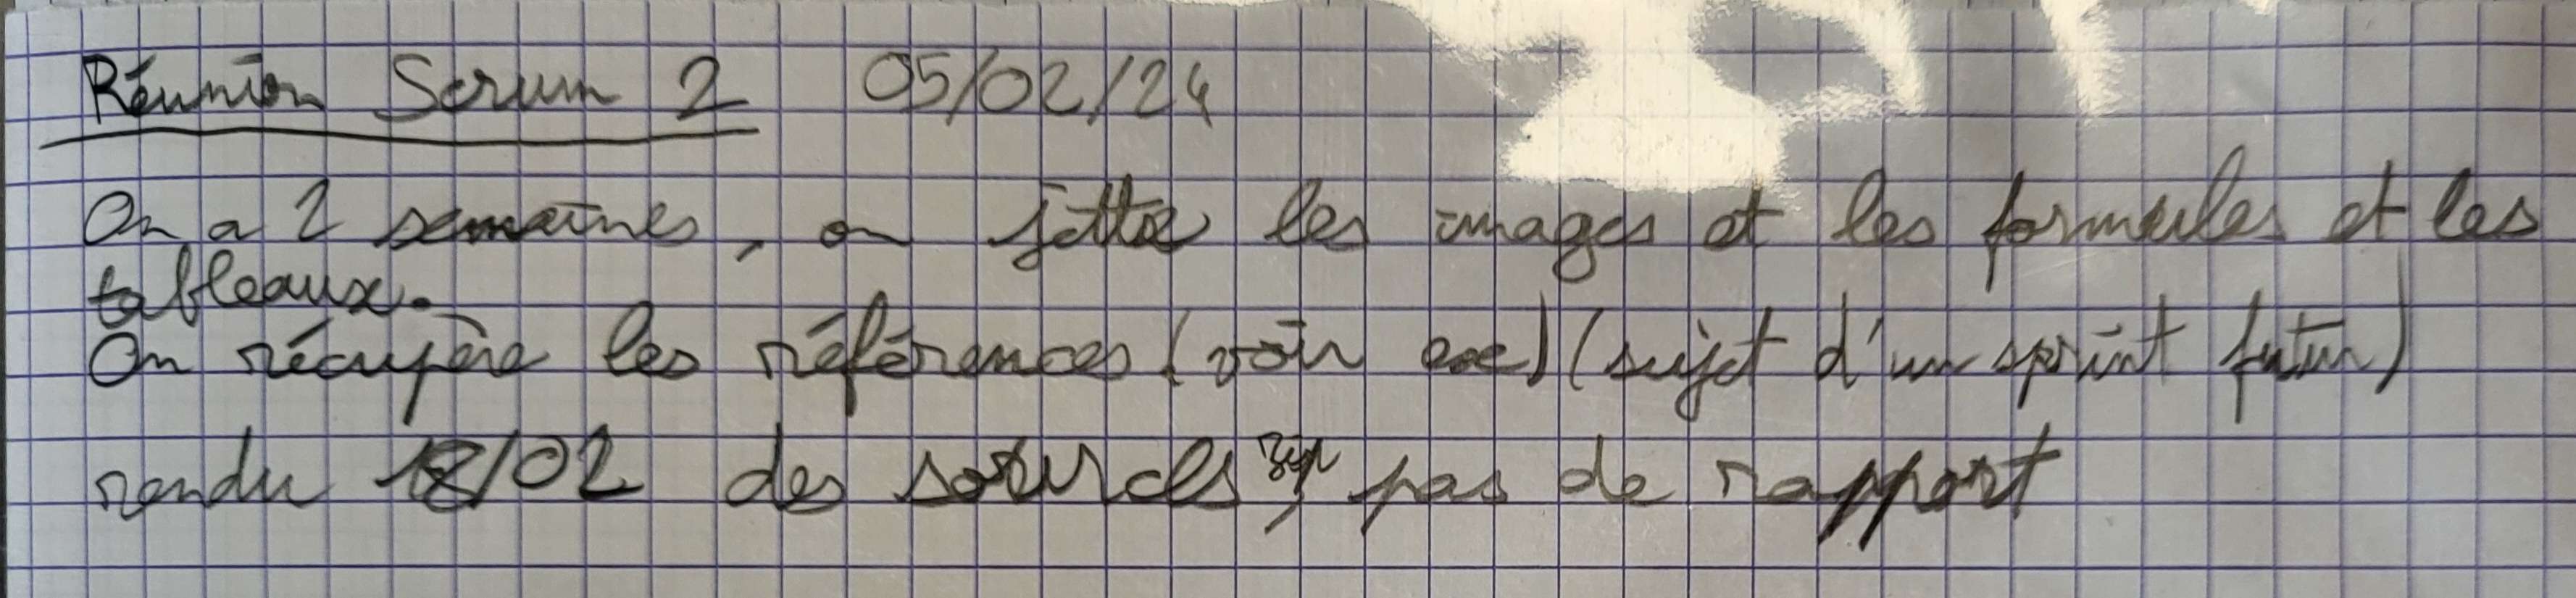 Réunion Scrum 2 05/02/24
On a 2 semaines, on jette les images et les formules et les
tableaux.
On récupère les références (voir exe) (sujet d'un sprint futur)
rendu 18/02 des sources zip, pas de rapport